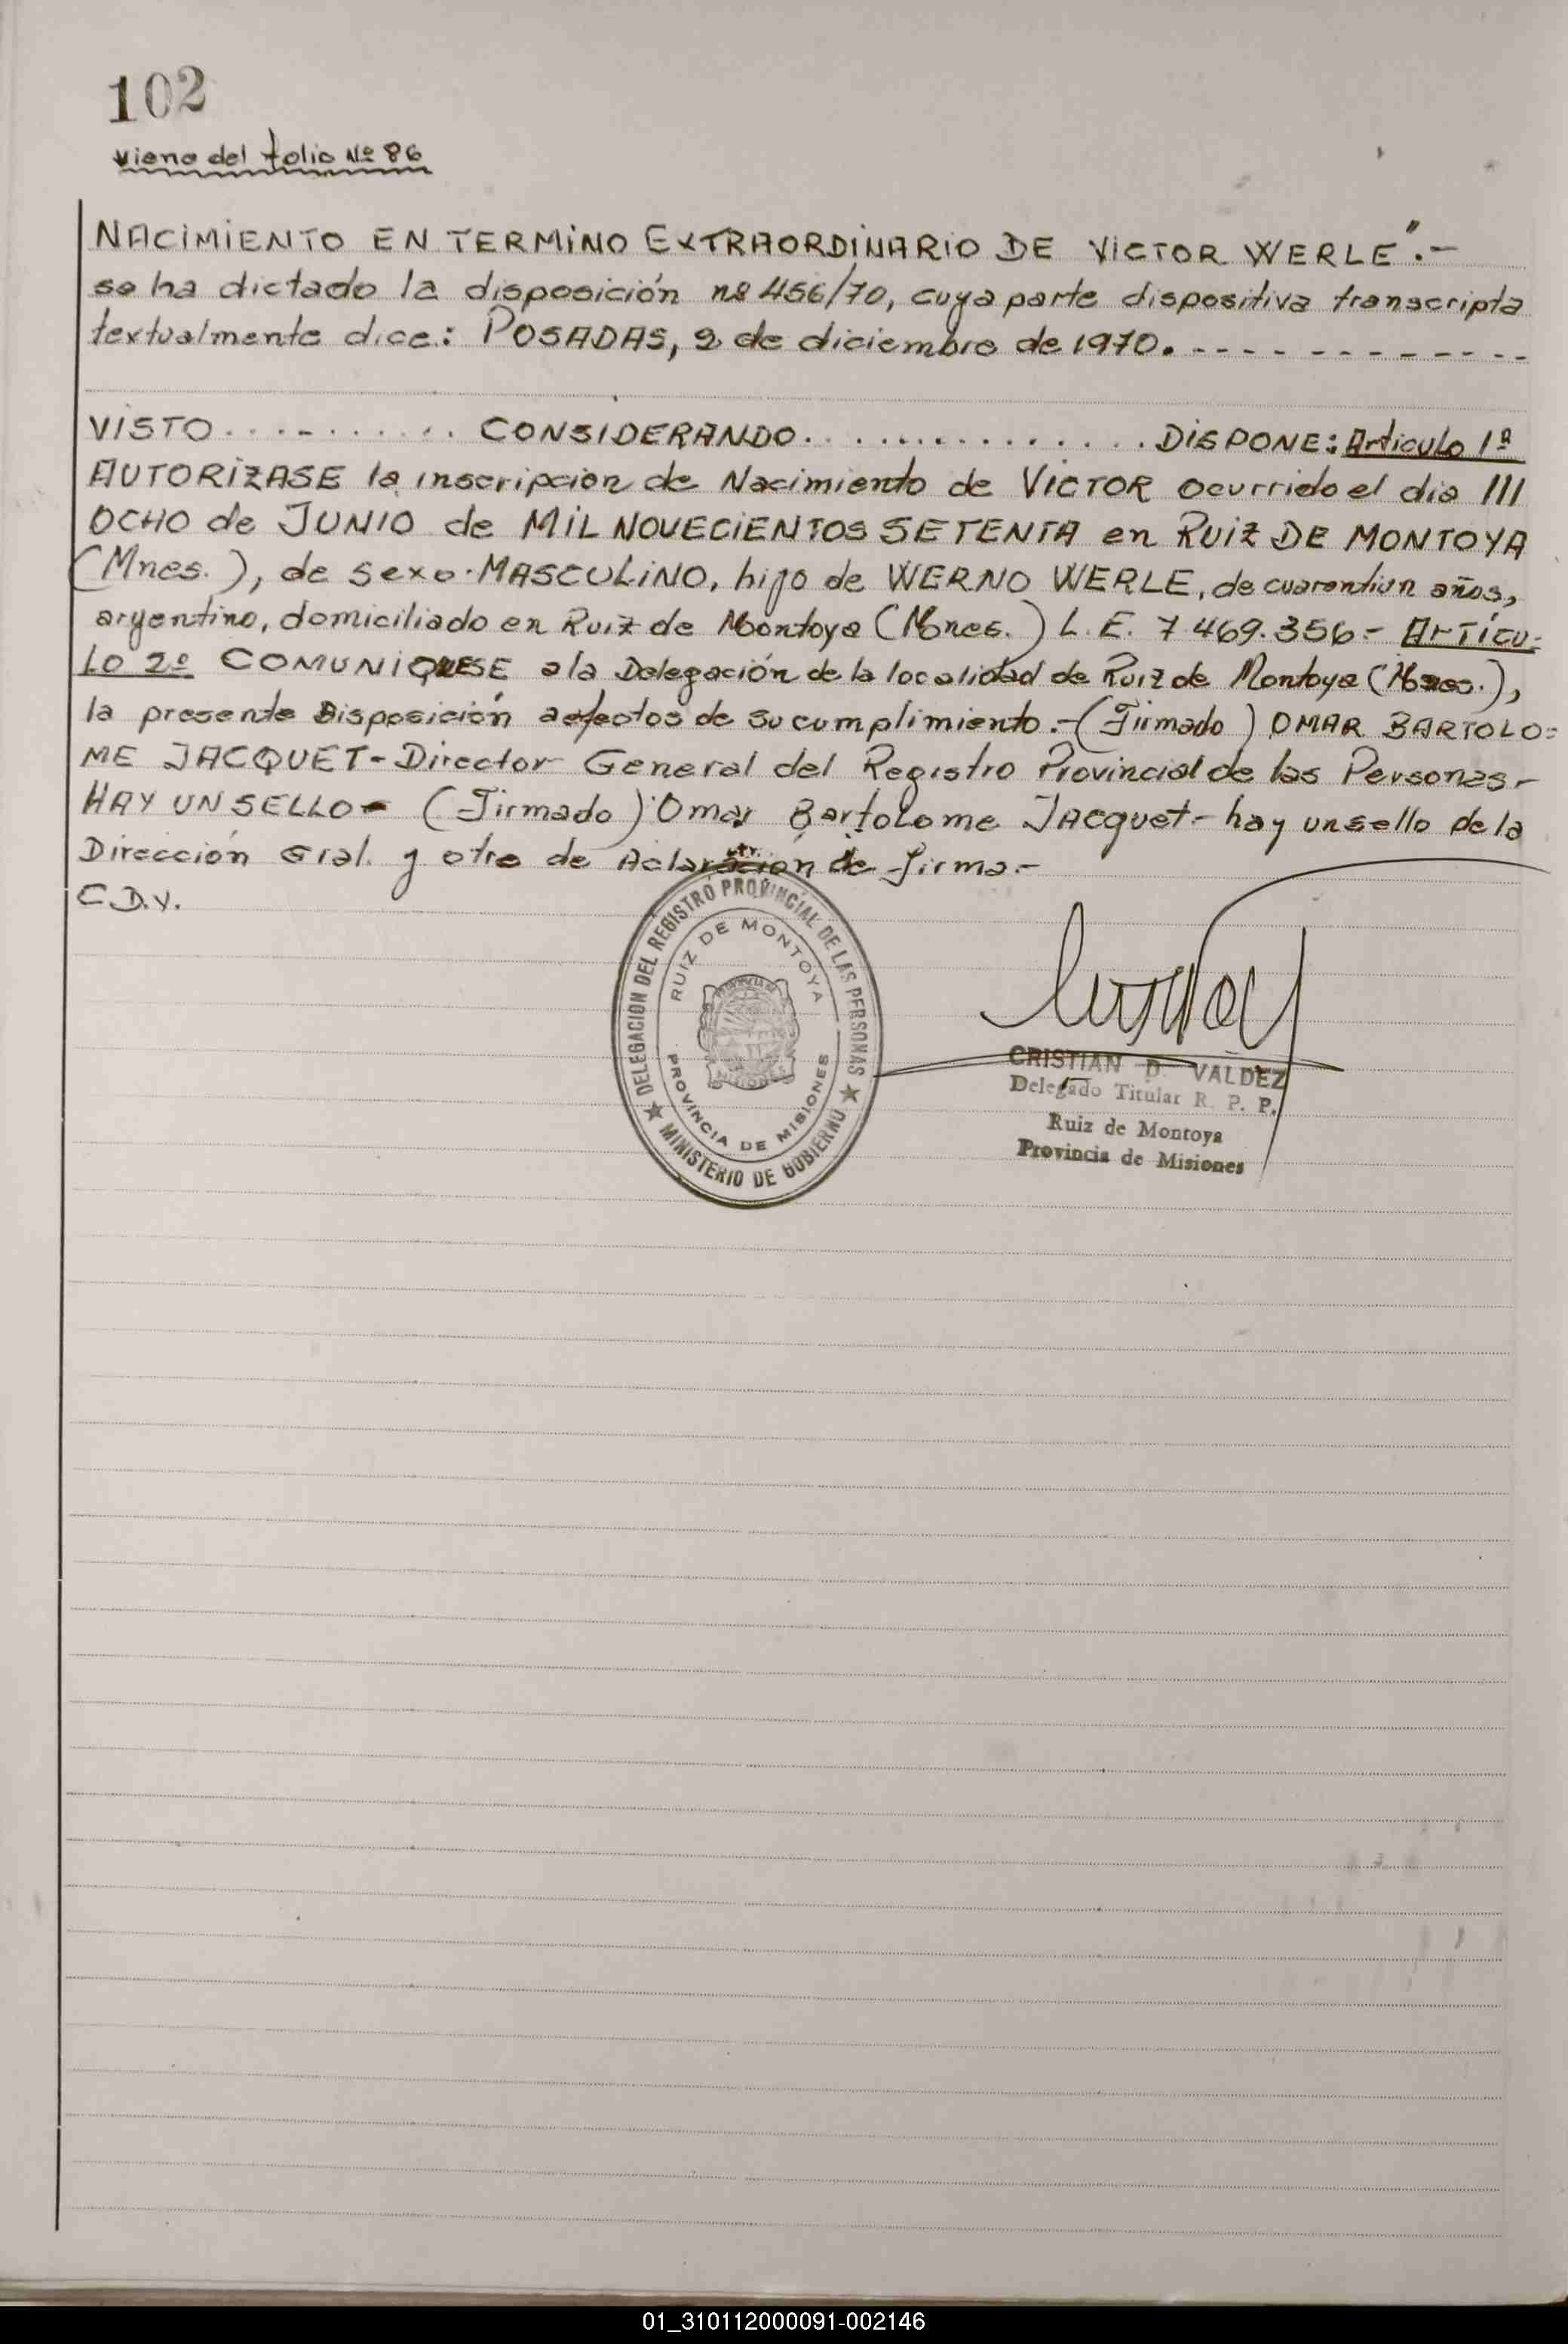 102
Viene del folio Nº 86
NACIMIENTO EN TERMINO EXTRAORDINARIO DE VICTOR WERLE".-
se ha dictado la disposición nº 456/70, cuya parte dispositiva transcripta
textualmente dice: POSADAS, 2 de diciembre de 1970. - - - - - - - - - - - -
VISTO........... CONSIDERANDO............... DISPONE: Articulo 1º
AUTORIZASE la inscripcion de Nacimiento de VICTOR ocurrido el dia ///
OCHO de JUNIO de MIL NOVECIENTOS SETENTA en RUIZ DE MONTOYA
(Mnes.), de sexo MASCULINO, hijo de WERNO WERLE, de cuarentiun años,
argentino, domiciliado en Ruiz de Montoya (Mnes.) L.E. 7.469.356.- ARTÍCU-
LO 2º COMUNIQUESE a la Delegación de la localidad de Ruiz de Montoya (Mnes.),
la presente Disposición a efectos de su cumplimiento.- (Firmado) OMAR BARTOLO=
ME JACQUET- Director General del Registro Provincial de las Personas.-
HAY UN SELLO- (Firmado) Omar Bartolome Jacquet- hay un sello de la
Dirección Gral. y otro de Aclaracion de firma.-
C.D.V.
DELEGACION DEL REGISTRO PROVINCIAL DE LAS PERSONAS
RUIZ DE MONTOYA
MISIONES
PROVINCIA DE MISIONES
★ MINISTERIO DE GOBIERNO ★
CRISTIAN D. VALDEZ
Delegado Titular R. P. P.
Ruiz de Montoya
Provincia de Misiones
01_310112000091-002146